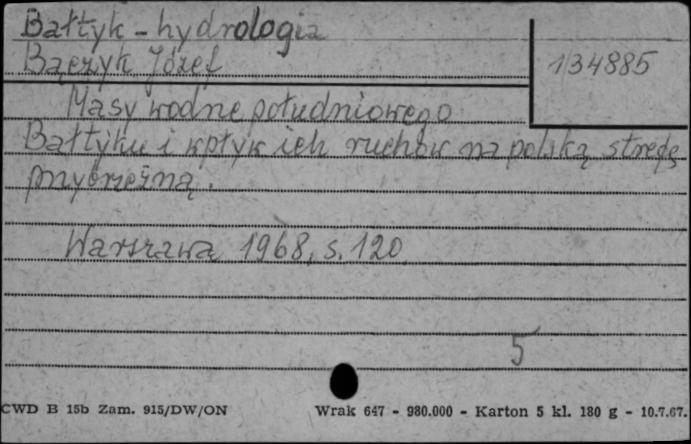 Bałtyk - hydrologia
Bączyk Józef
134885
Masy wodne południowego
Bałtyku i wpływ ich ruchów na polską strefę
przybrzeżną.
Warszawa 1968, s. 120
5
CWD B 15b Zam. 915/DW/ON
Wrak 647 - 980.000 - Karton 5 kl. 180 g - 10.7.67.